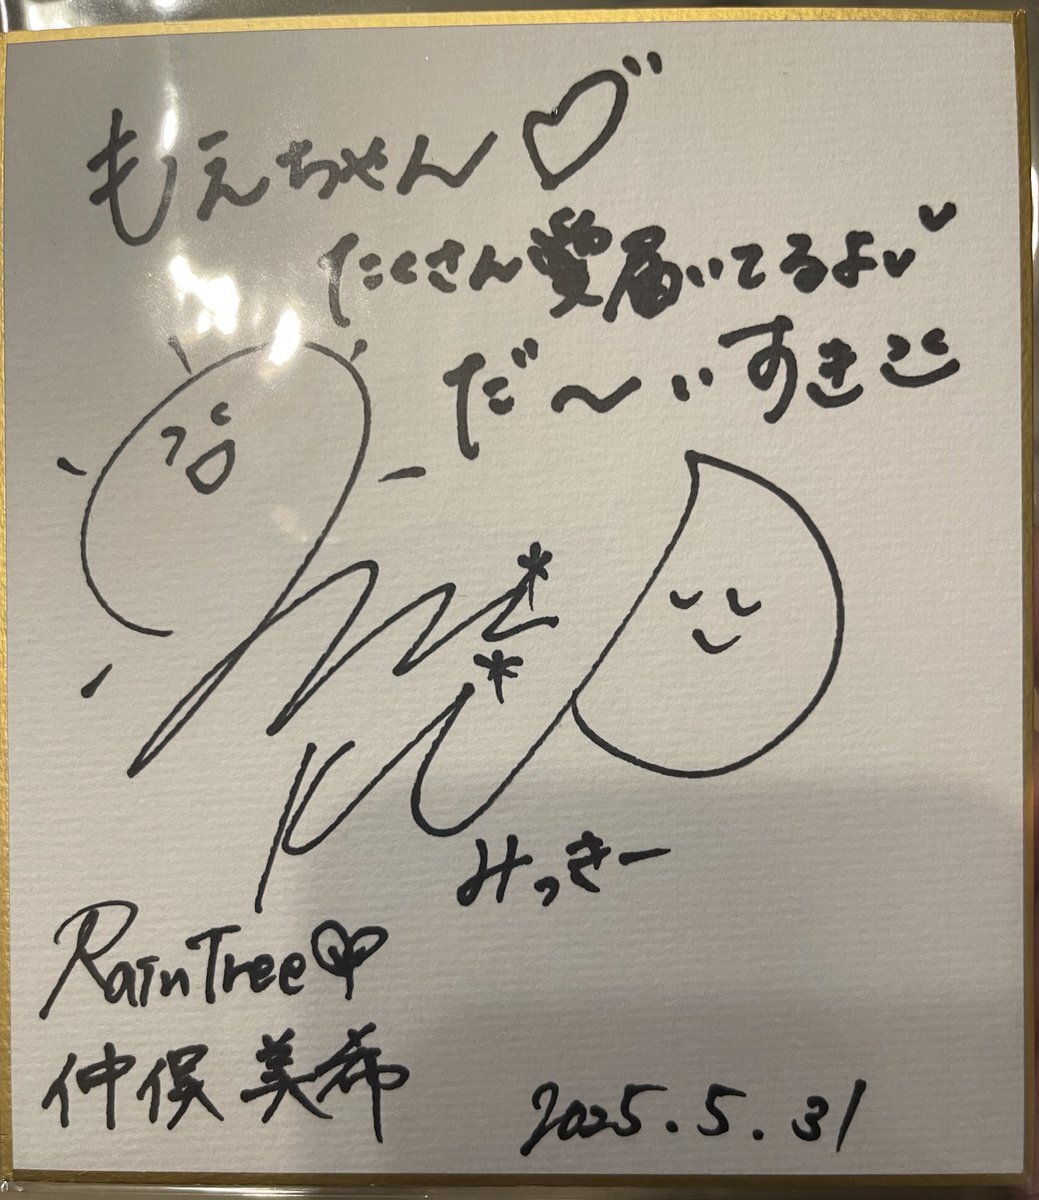 もえちゃん♡
たくさん愛届いてるよ
だ〜いすき
miki
みっきー
RainTree
仲俣 美希
2025.5.31